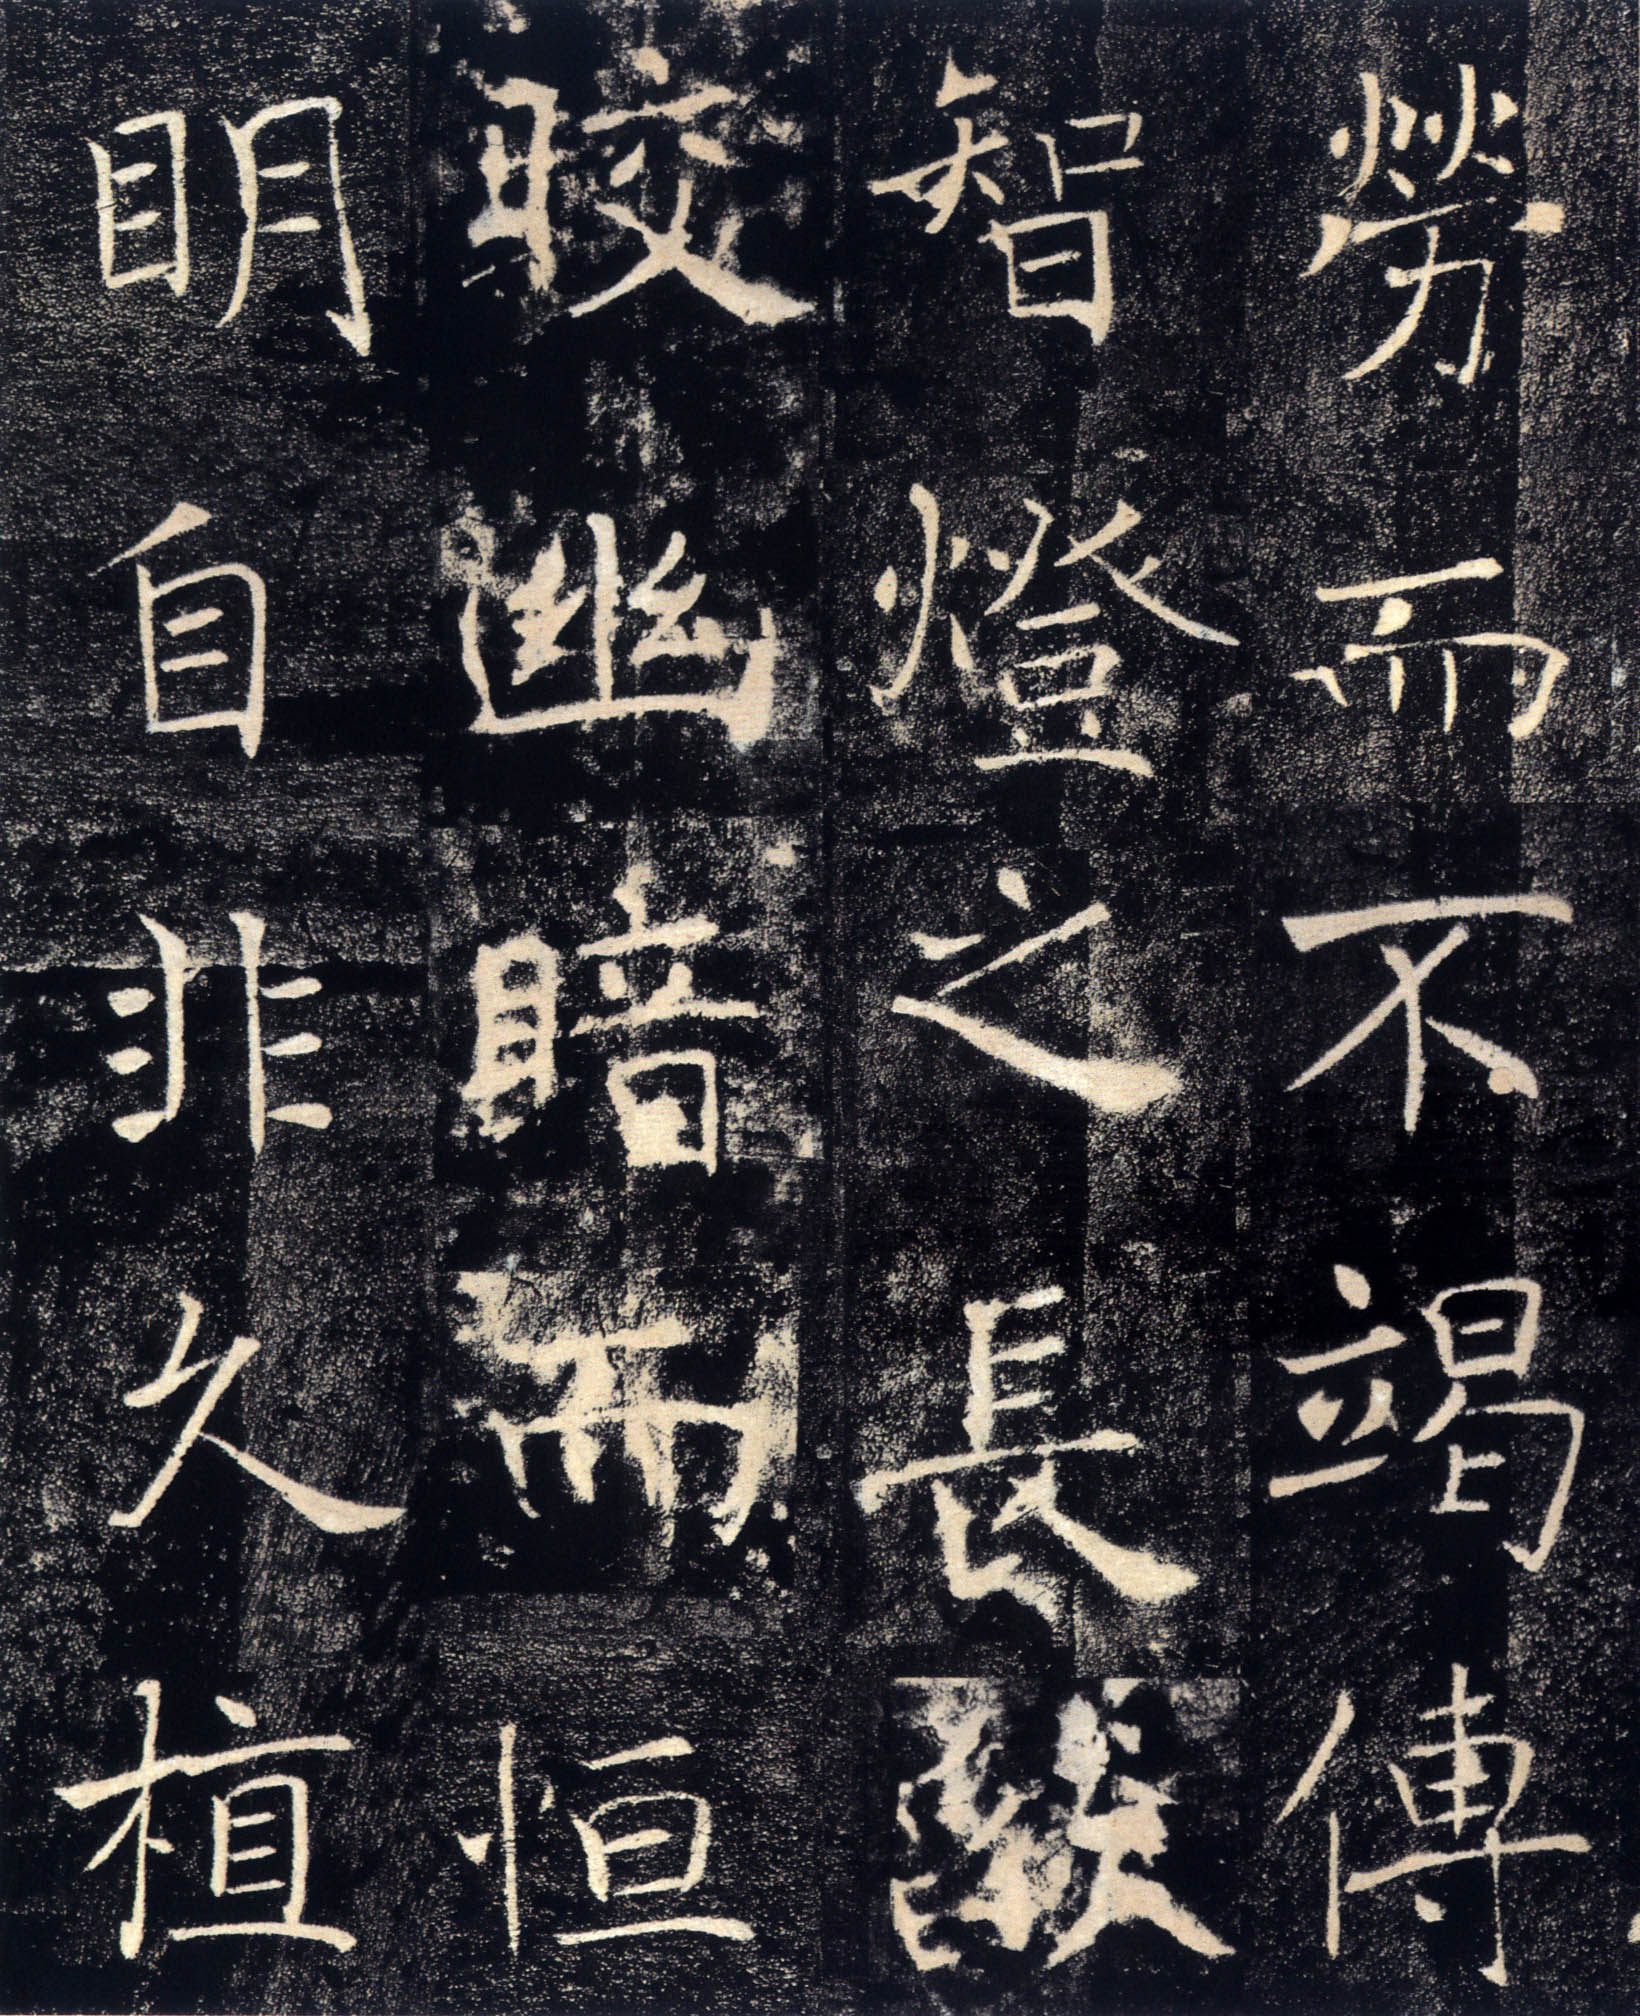 勞而不竭傳
智燈之長燄
皎幽暗而恒
明自非久植